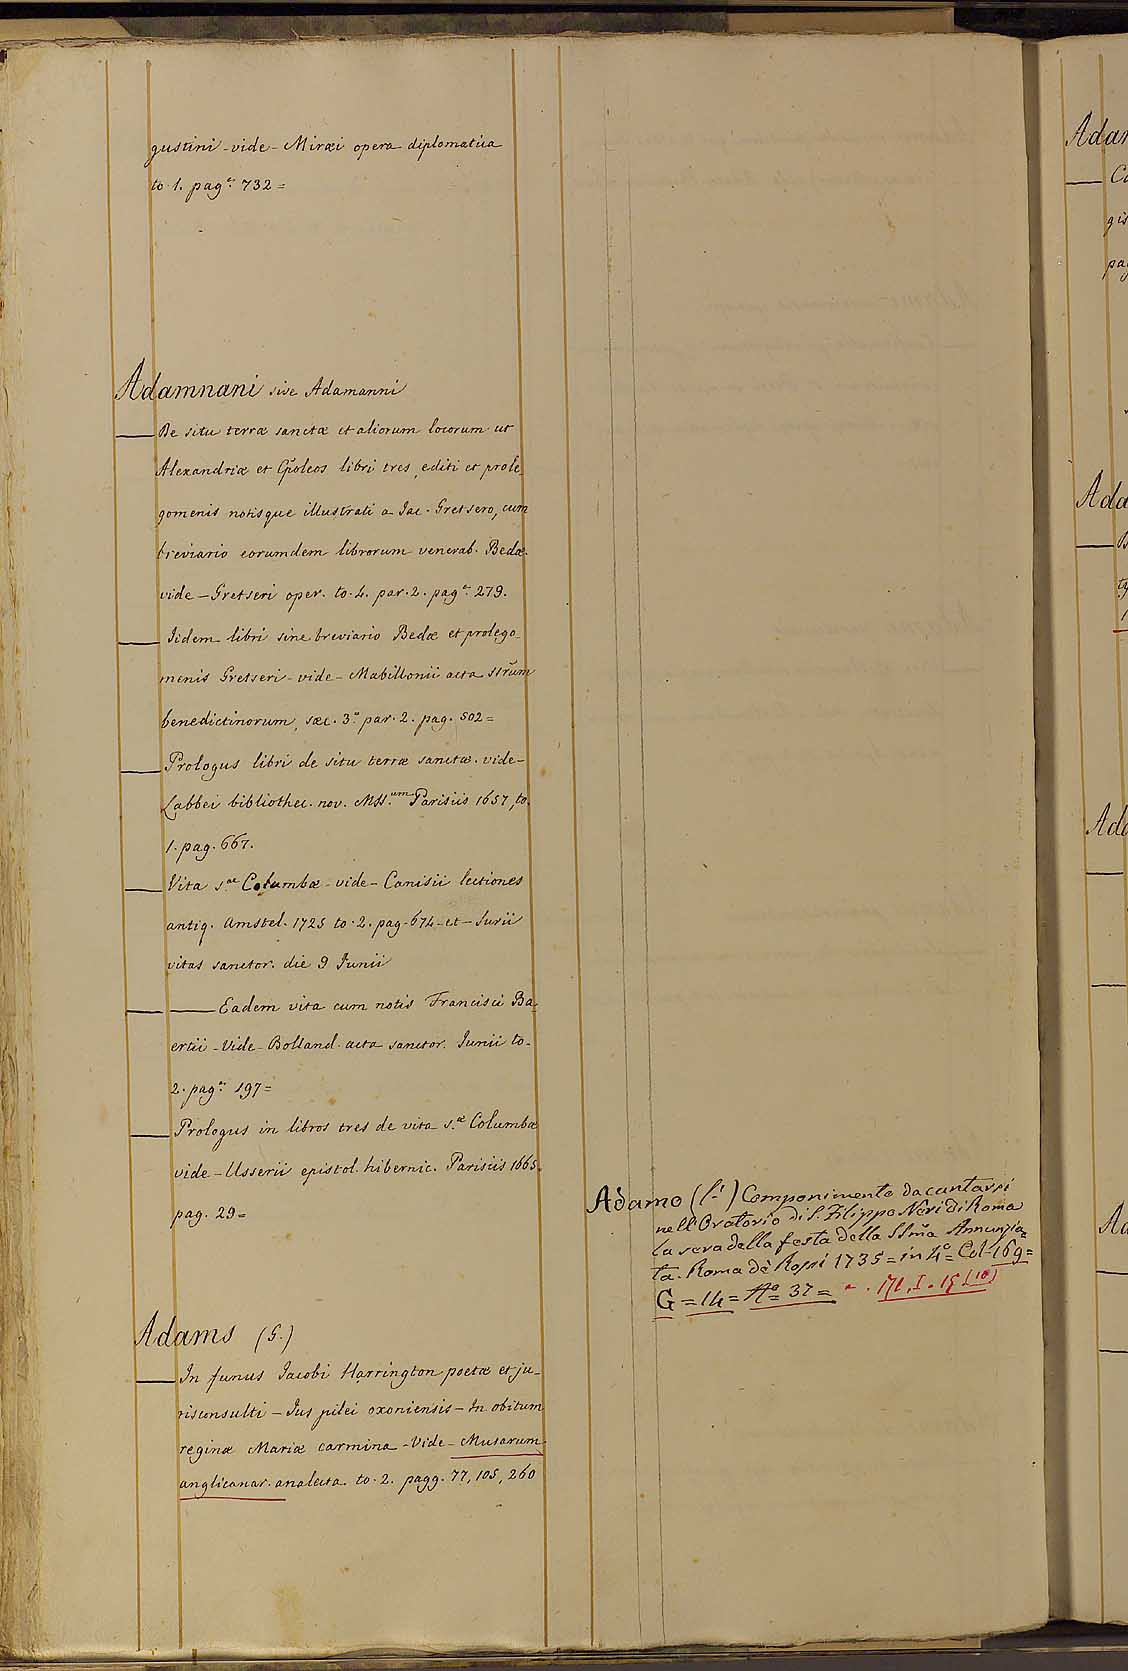 gustini - vide - Miræi opera diplomatica
to. 1. pag.ª 732 =
Adamnani sive Adamanni
— De situ terræ sanctæ et aliorum locorum ut
Alexandriæ et Cp̃oleos libri tres, editi et prole_
gomenis notisque illustrati a Iac. Gretsero, cum
breviario eorumdem librorum venerab. Bedæ.
vide - Gretseri oper. to. 4. par. 2. pag.ª 279.
— Iidem libri sine breviario Bedæ et prolego_
menis Gretseri - vide - Mabillonii acta SS̃rum
benedictinorum, sæc. 3.º par. 2. pag. 502 =
— Prologus libri de situ terræ sanctæ. vide -
Labbei bibliothec. nov. MSS.um Parisiis 1657, to.
1. pag. 667.
— Vita S.ae Columbæ - vide - Canisii lectiones
antiq. Amstel. 1725 to. 2. pag. 674 - et - Surii
vitas sanctor. die 9 Junii
— — Eadem vita cum notis Francisci Ba_
ertii - Vide - Bolland. acta sanctor. Junii to.
2. pag.ª 197 =
— Prologus in libros tres de vita S.æ Columbæ
vide - Usserii epistol. hibernic. Parisiis 1665.
pag. 29 =
Adams (G.)
— In funus Jacobi Harrington poetæ et ju_
risconsulti - Jus pilei oxoniensis - In obitum
reginæ Mariæ carmina - Vide - Musarum
anglicanar. analecta to. 2. pagg. 77, 105, 260
Adamo (l') Componimento da cantarsi
nell'Oratorio di S. Filippo Neri di Roma
la sera della festa della SSm̃a Annunzia=
ta. Roma de Rossi 1735 = in 4.º = Col. 169 =
G = 14 = Nº 37 =
Adam
— Co
gis
pa
Ada
Ada
Ad